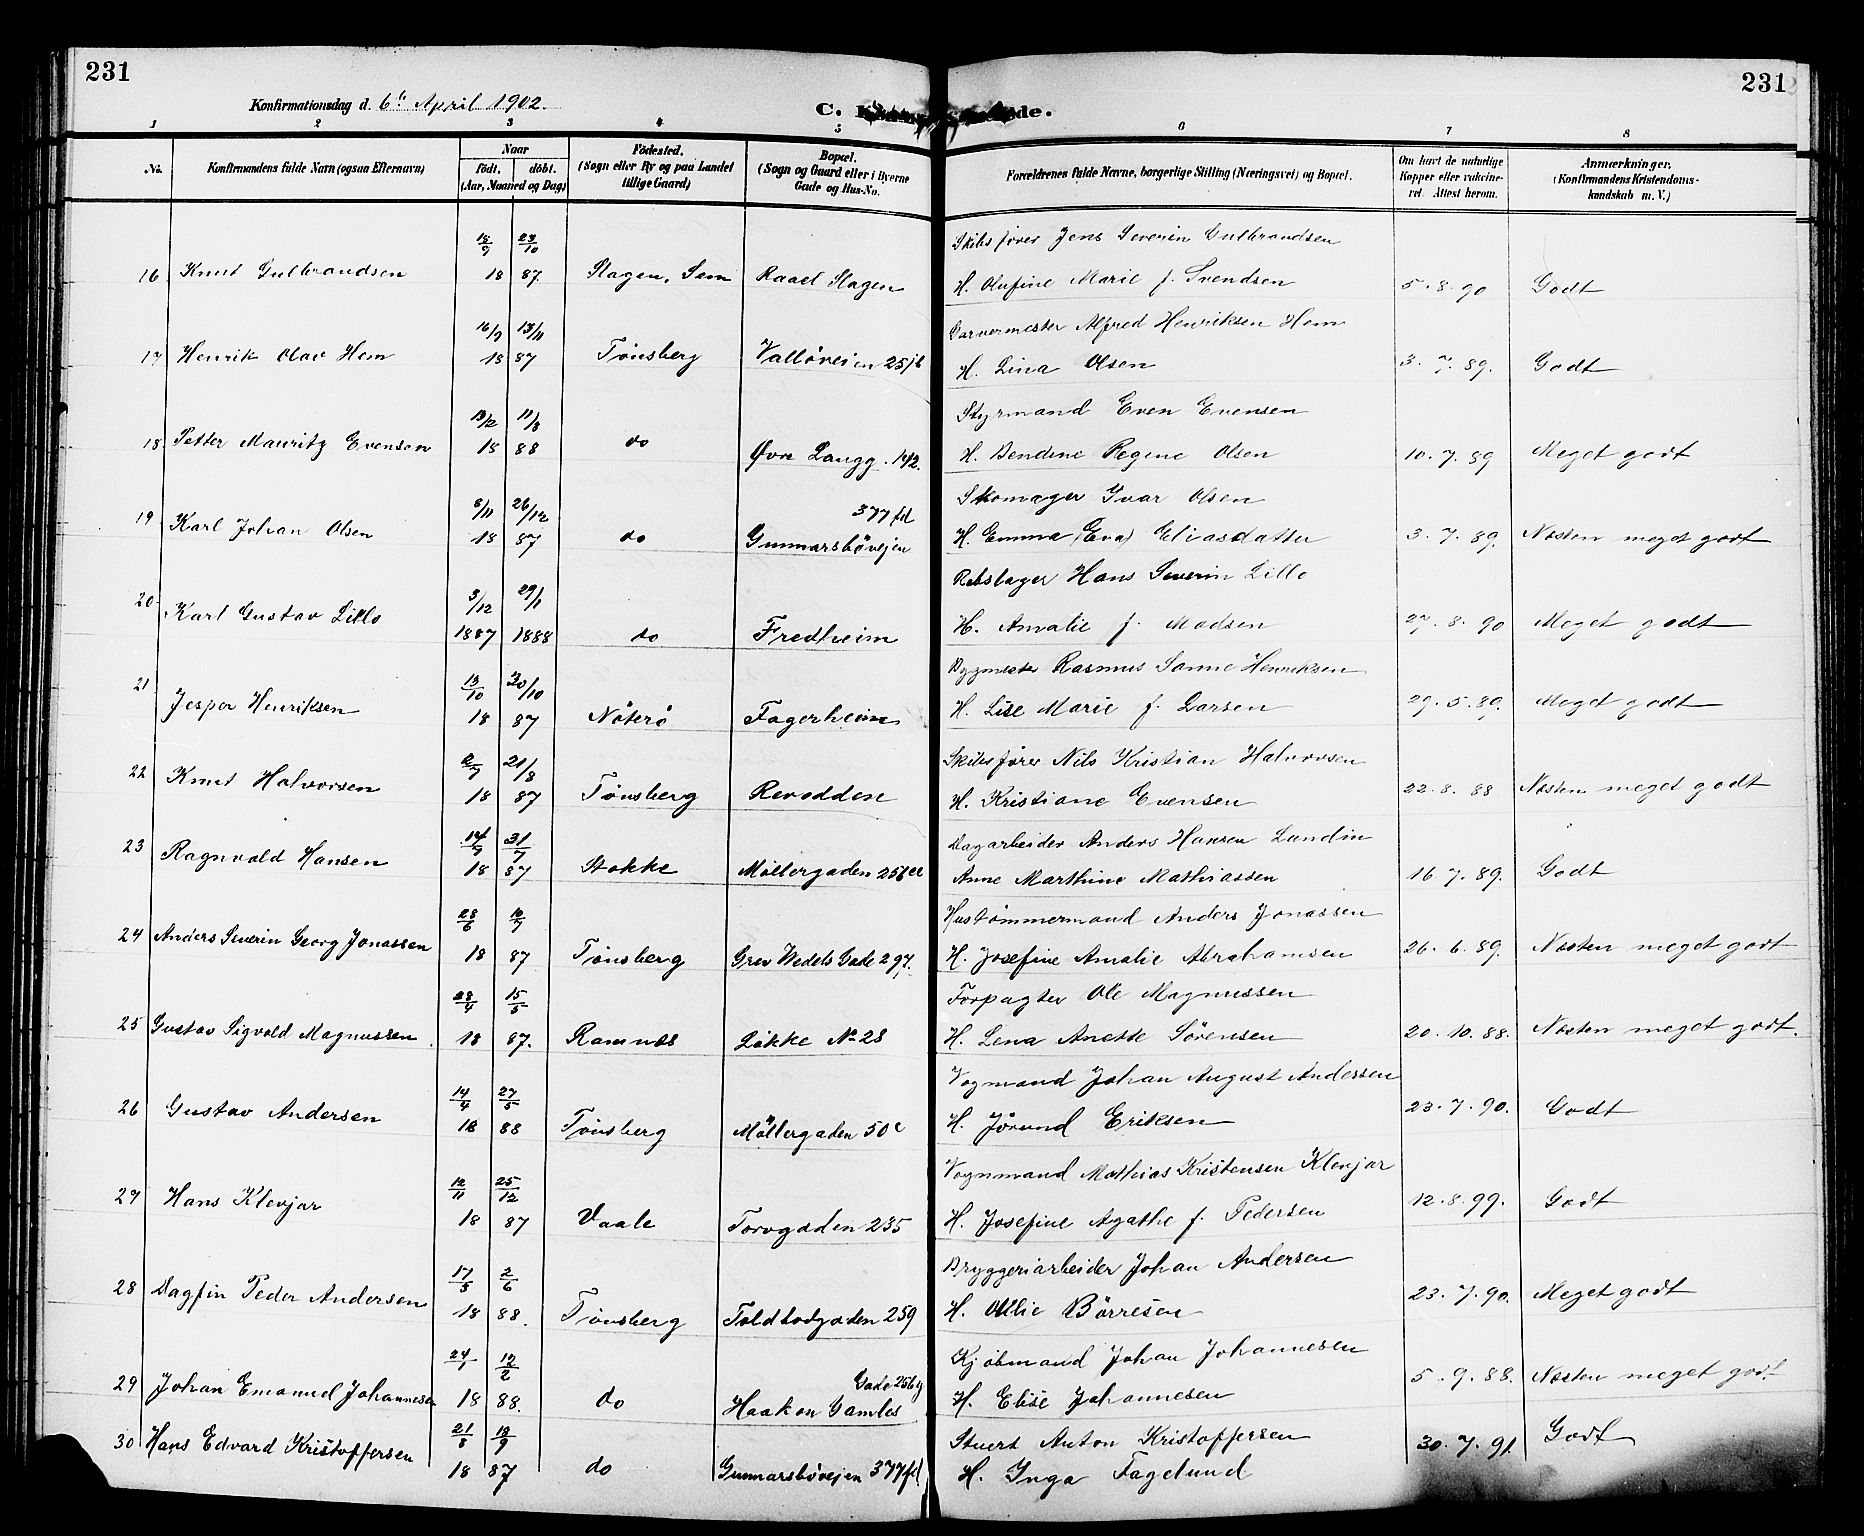 231
231
Konfirmationsdag d. 6te April 1902.
C. K de.
1 2 3 4 5 6 7 8
No. Konfirmandens fulde Navn (ogsaa Efternavn) Naar født, døbt. (Aar, Maaned og Dag) Fødested. (Sogn eller By og paa Landet tillige Gaard) Bopæl. (Sogn og Gaard eller i Byerne Gade og Hus-No. Forældrenes fulde Navne, borgerlige Stilling (Næringsvei) og Bopæl. Om havt de naturlige Kopper eller vakcineret. Attest herom. Anmærkninger. (Konfirmandens Kristendomskundskab m. V.)
18/9 23/10 Skibsfører Jens Severin Gulbrandsen
16 Knut Gulbrandsen 18 87. Slagen, Sem Raael Slagen H. Olufine Marie f. Svendsen 5.8.90 Godt
16/9 13/11 Garvermester Alfred Henriksen Hem
17 Henrik Olav Hem 18 87 Tønsberg Valløveien 251b H. Lina Olsen 3.7.89. Godt
13/2 11/3 Styrmand Even Evensen
18. Petter Mauritz Evensen 18 88 do Øvre Langg. 142. H. Bendine Regine Olsen 10.7.89 Meget godt
8/11 26/12 377 fd Skomager Ivar Olsen
19 Karl Johan Olsen 18 87 do Gunnarsbøvejen H. Emma (Eva) Eliasdatter 3.7.89. Næsten meget godt
3/12 29/1 Rebslager Hans Severin Lillo
20 Karl Gustav Lillo 1887 1888 do Fredheim H. Amalie f. Madsen 27.8.90 Meget godt
13/10 30/10 Bygmester Rasmus Sanne Henriksen
21 Jesper Henriksen 18 87 Nøterø Fagerheim H. Lise Marie f. Larsen 29.5.89. Meget godt
2/7 21/8 Skibsfører Nils Kristian Halvorsen
22 Knut Halvorsen 18 87 Tønsberg Revodden H. Kristiane Evensen 22.8.88 Næsten meget godt
14/7 31/7 Dagarbeider Anders Hansen Lundin
23 Ragnvald Hansen 18 87 Stokke Møllergaden Anne Marthine Mathiassen 16.7.89. Godt
28/6 Hustømmermand Anders Jonassen
24 Anders Severin Georg Jonassen 18 87 Tønsberg Grev Wedels Gade 297. H. Josefine Amalie Abrahamsen 26.6.89. Næsten meget godt
28/4 15/5 Forpagter Ole Magnussen
25 Gustav Sigvald Magnussen 18 87. Ramnæs Løkke No 28 H. Lena Anette Sørensen 20.10.88. Næsten meget godt.
14/4 27/5 Vogmand Johan August Andersen
26 Gustav Andersen 18 88 Tønsberg Møllergaden 50c H. Jørund Eriksen 23.7.90. Godt
12/11 25/12 Vognmand Mathias Kristensen Klevjar
27 Hans Klevjar 18 87 Vaale Torvgaden 235 H. Josefine Agathe f. Pedersen 12.8.99. Godt
17/5 2/6 Bryggeriarbeider Johan Andersen
28 Dagfin Peder Andersen 18 88. Tønsberg Toldbodgaden 259 H. Allie Børresen 23.7.90. Meget godt
24/1 12/2 Gade 256 g Kjøbmand Johan Johannesen
29 Johan Emanuel Johannesen 18 88. do Haakon Gamles H. Elise Johannesen 5.9.88. Næsten meget godt
21/8 18/9 Stuert Anton Kristoffersen
30 Hans Edvard Kristoffersen 18 87 do Gunnarsbøvejen 377 fd H. Inga Fagelund 30.7.91. Godt